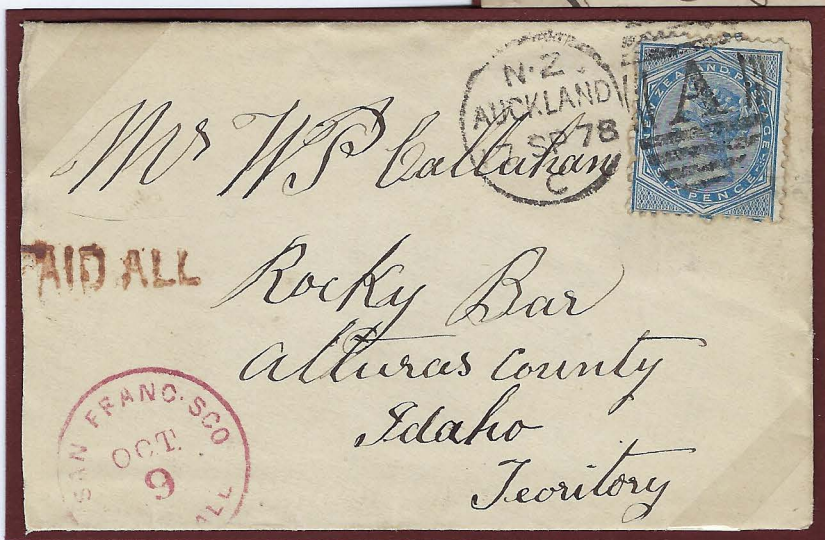 N.Z.
AUCKLAND
SP 78
C
A
NEW ZEALAND POSTAGE
SIXPENCE
Mr W P Callahan
PAID ALL
Rocky Bar
Alturas County
Idaho
Teoritory
SAN FRANCISCO
OCT
9
ALL